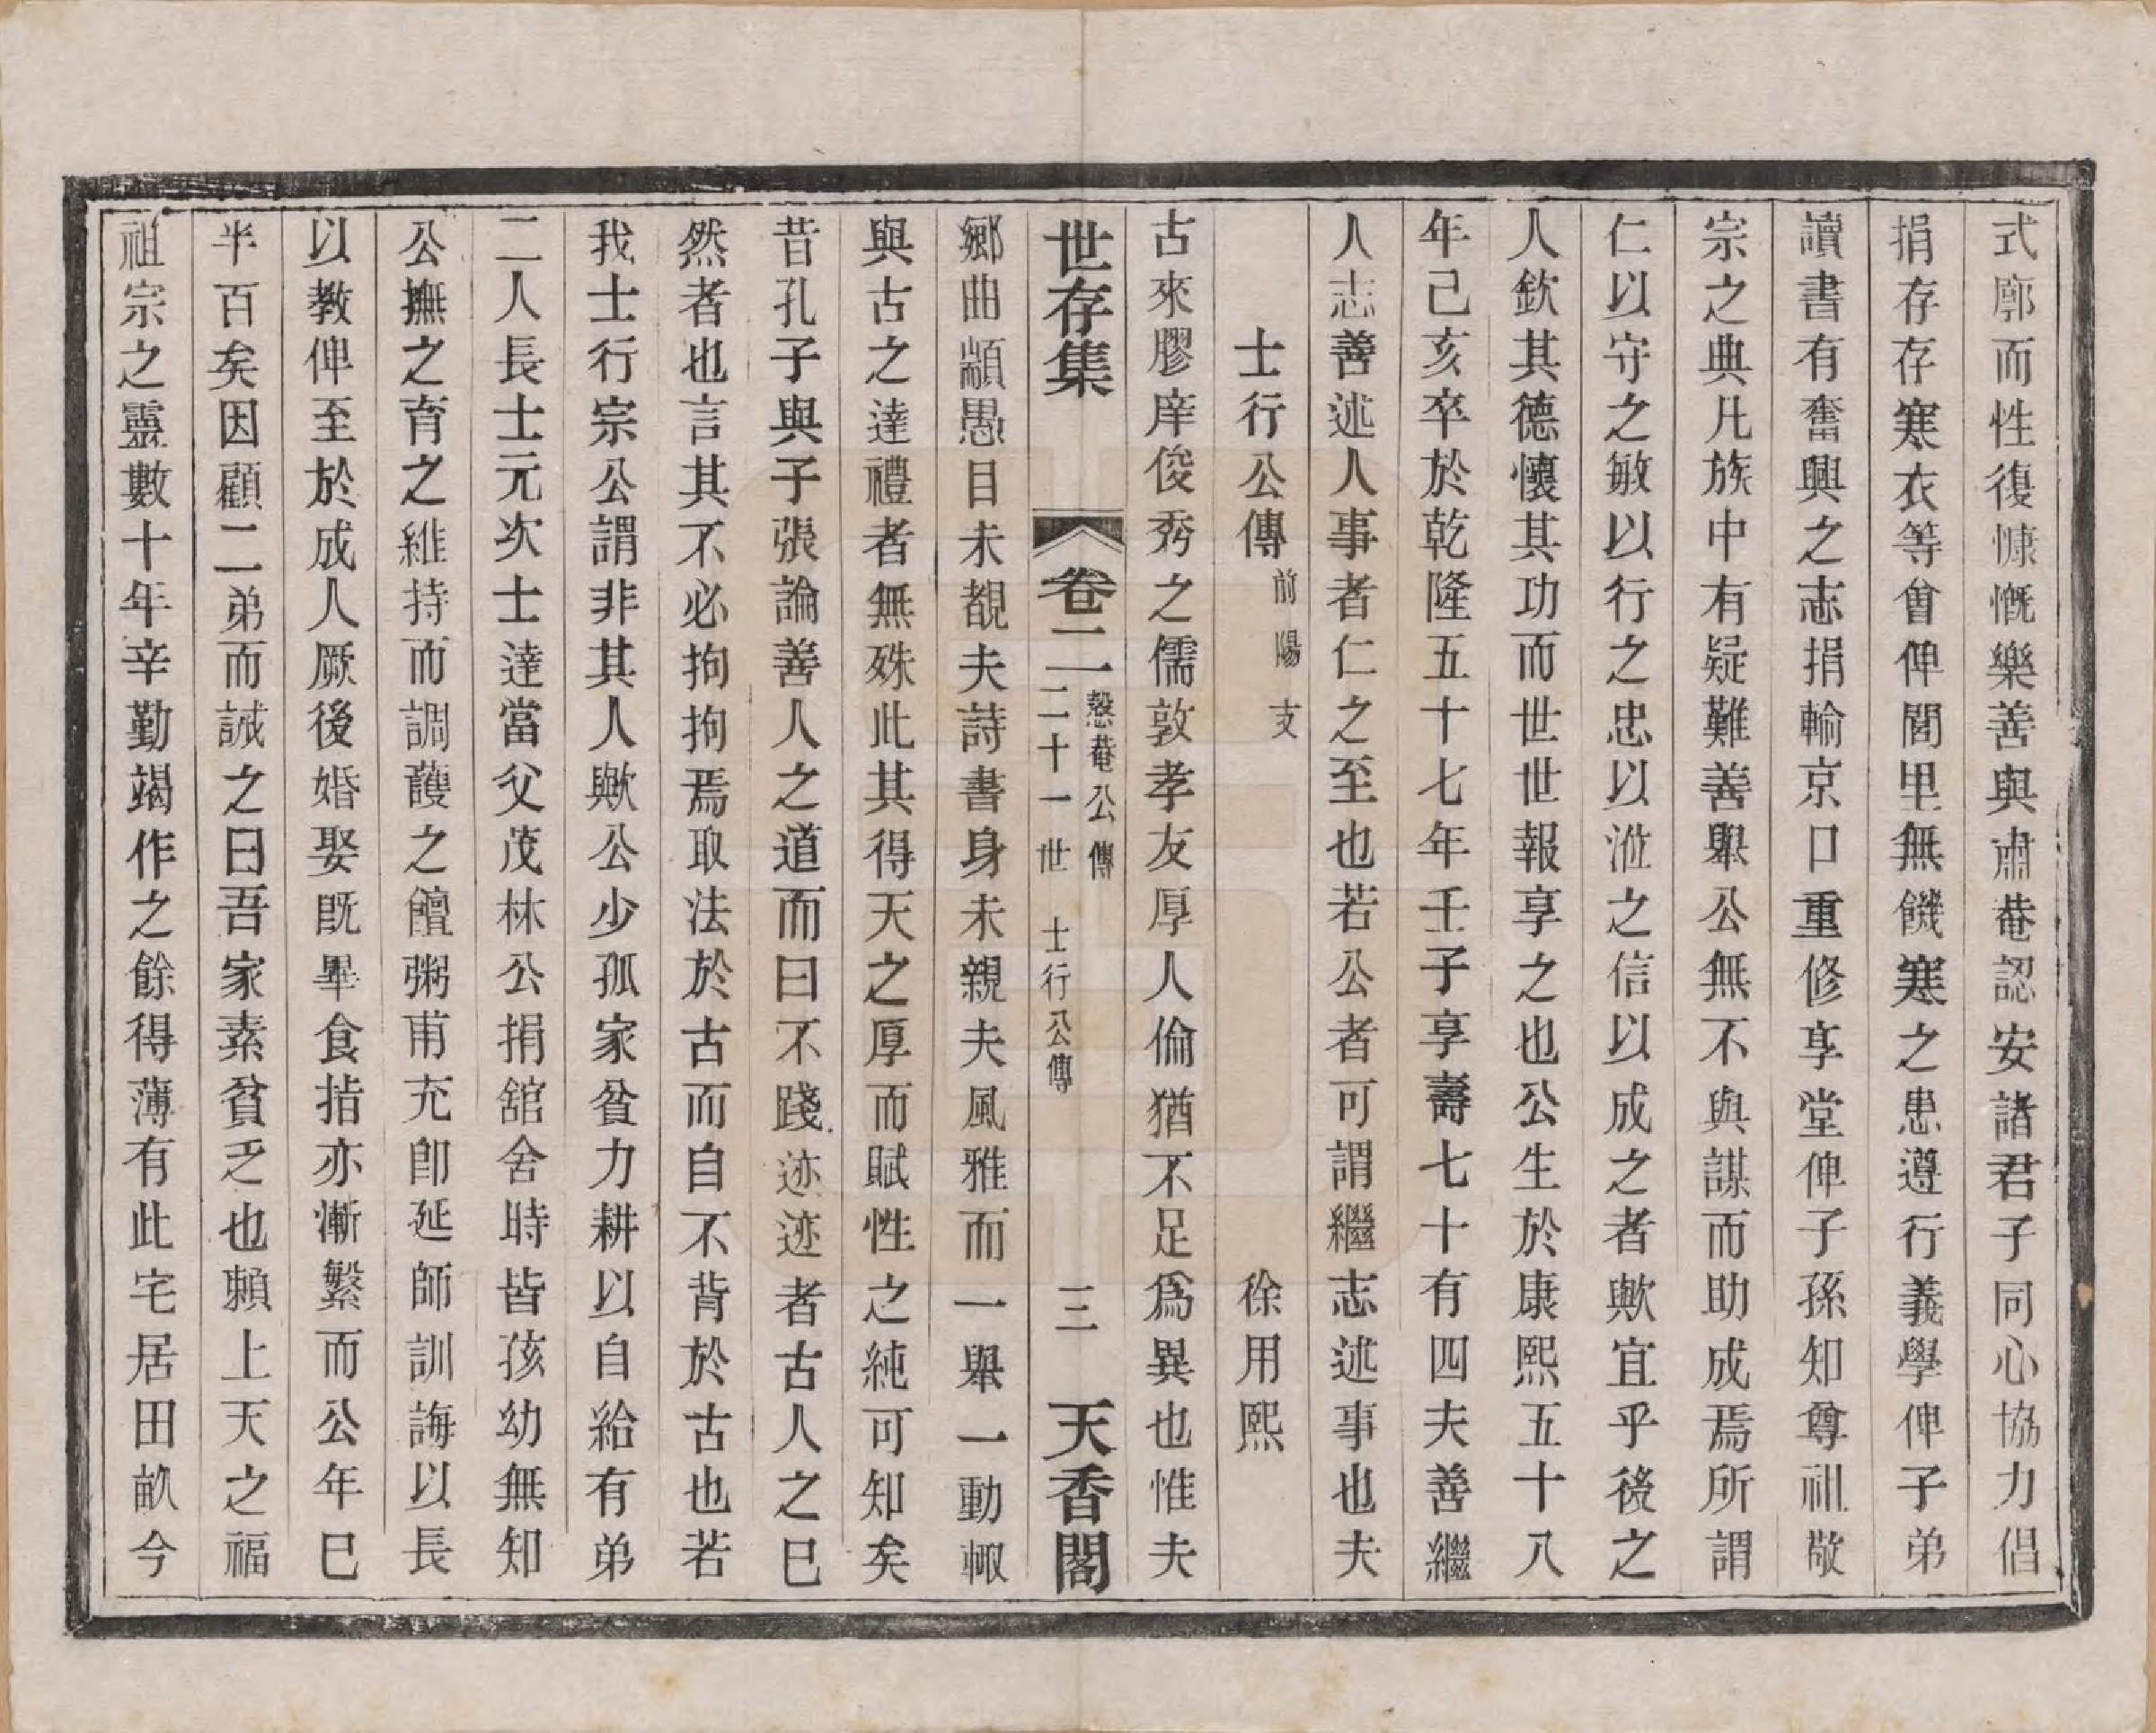 式廓而性復慷慨樂善與肅菴認安諸君子同心協力倡
捐存存寒衣等曾俾閭里無饑寒之患遵行義學俾子弟
讀書有奮興之志捐輸京口重修享堂俾子孫知尊祖敬
宗之典凡族中有疑難善舉公無不與謀而助成焉所謂
仁以守之敏以行之忠以涖之信以成之者歟宜乎後之
人欽其德懷其功而世世報享之也公生於康熙五十八
年己亥卒於乾隆五十七年壬子享壽七十有四夫善繼
人志善述人事者仁之至也若公者可謂繼志述事也夫
士行公傳 前陽支 徐用熙
古來膠庠俊秀之儒敦孝友厚人倫猶不足爲異也惟夫
世存集 卷二 慤菴公傳 二十一世 士行公傳 三 天香閣
鄉曲顓愚目未覩夫詩書身未親夫風雅而一舉一動輙
與古之達禮者無殊此其得天之厚而賦性之純可知矣
昔孔子與子張論善人之道而曰不踐迹迹者古人之已
然者也言其不必拘拘焉取法於古而自不背於古也若
我士行宗公謂非其人歟公少孤家貧力耕以自給有弟
二人長士元次士達當父茂林公捐舘舍時皆孩幼無知
公撫之育之維持而調護之饘粥甫充卽延師訓誨以長
以教俾至於成人厥後婚娶旣畢食指亦漸繁而公年已
半百矣因顧二弟而誡之曰吾家素貧乏也賴上天之福
祖宗之靈數十年辛勤竭作之餘得薄有此宅居田畝今